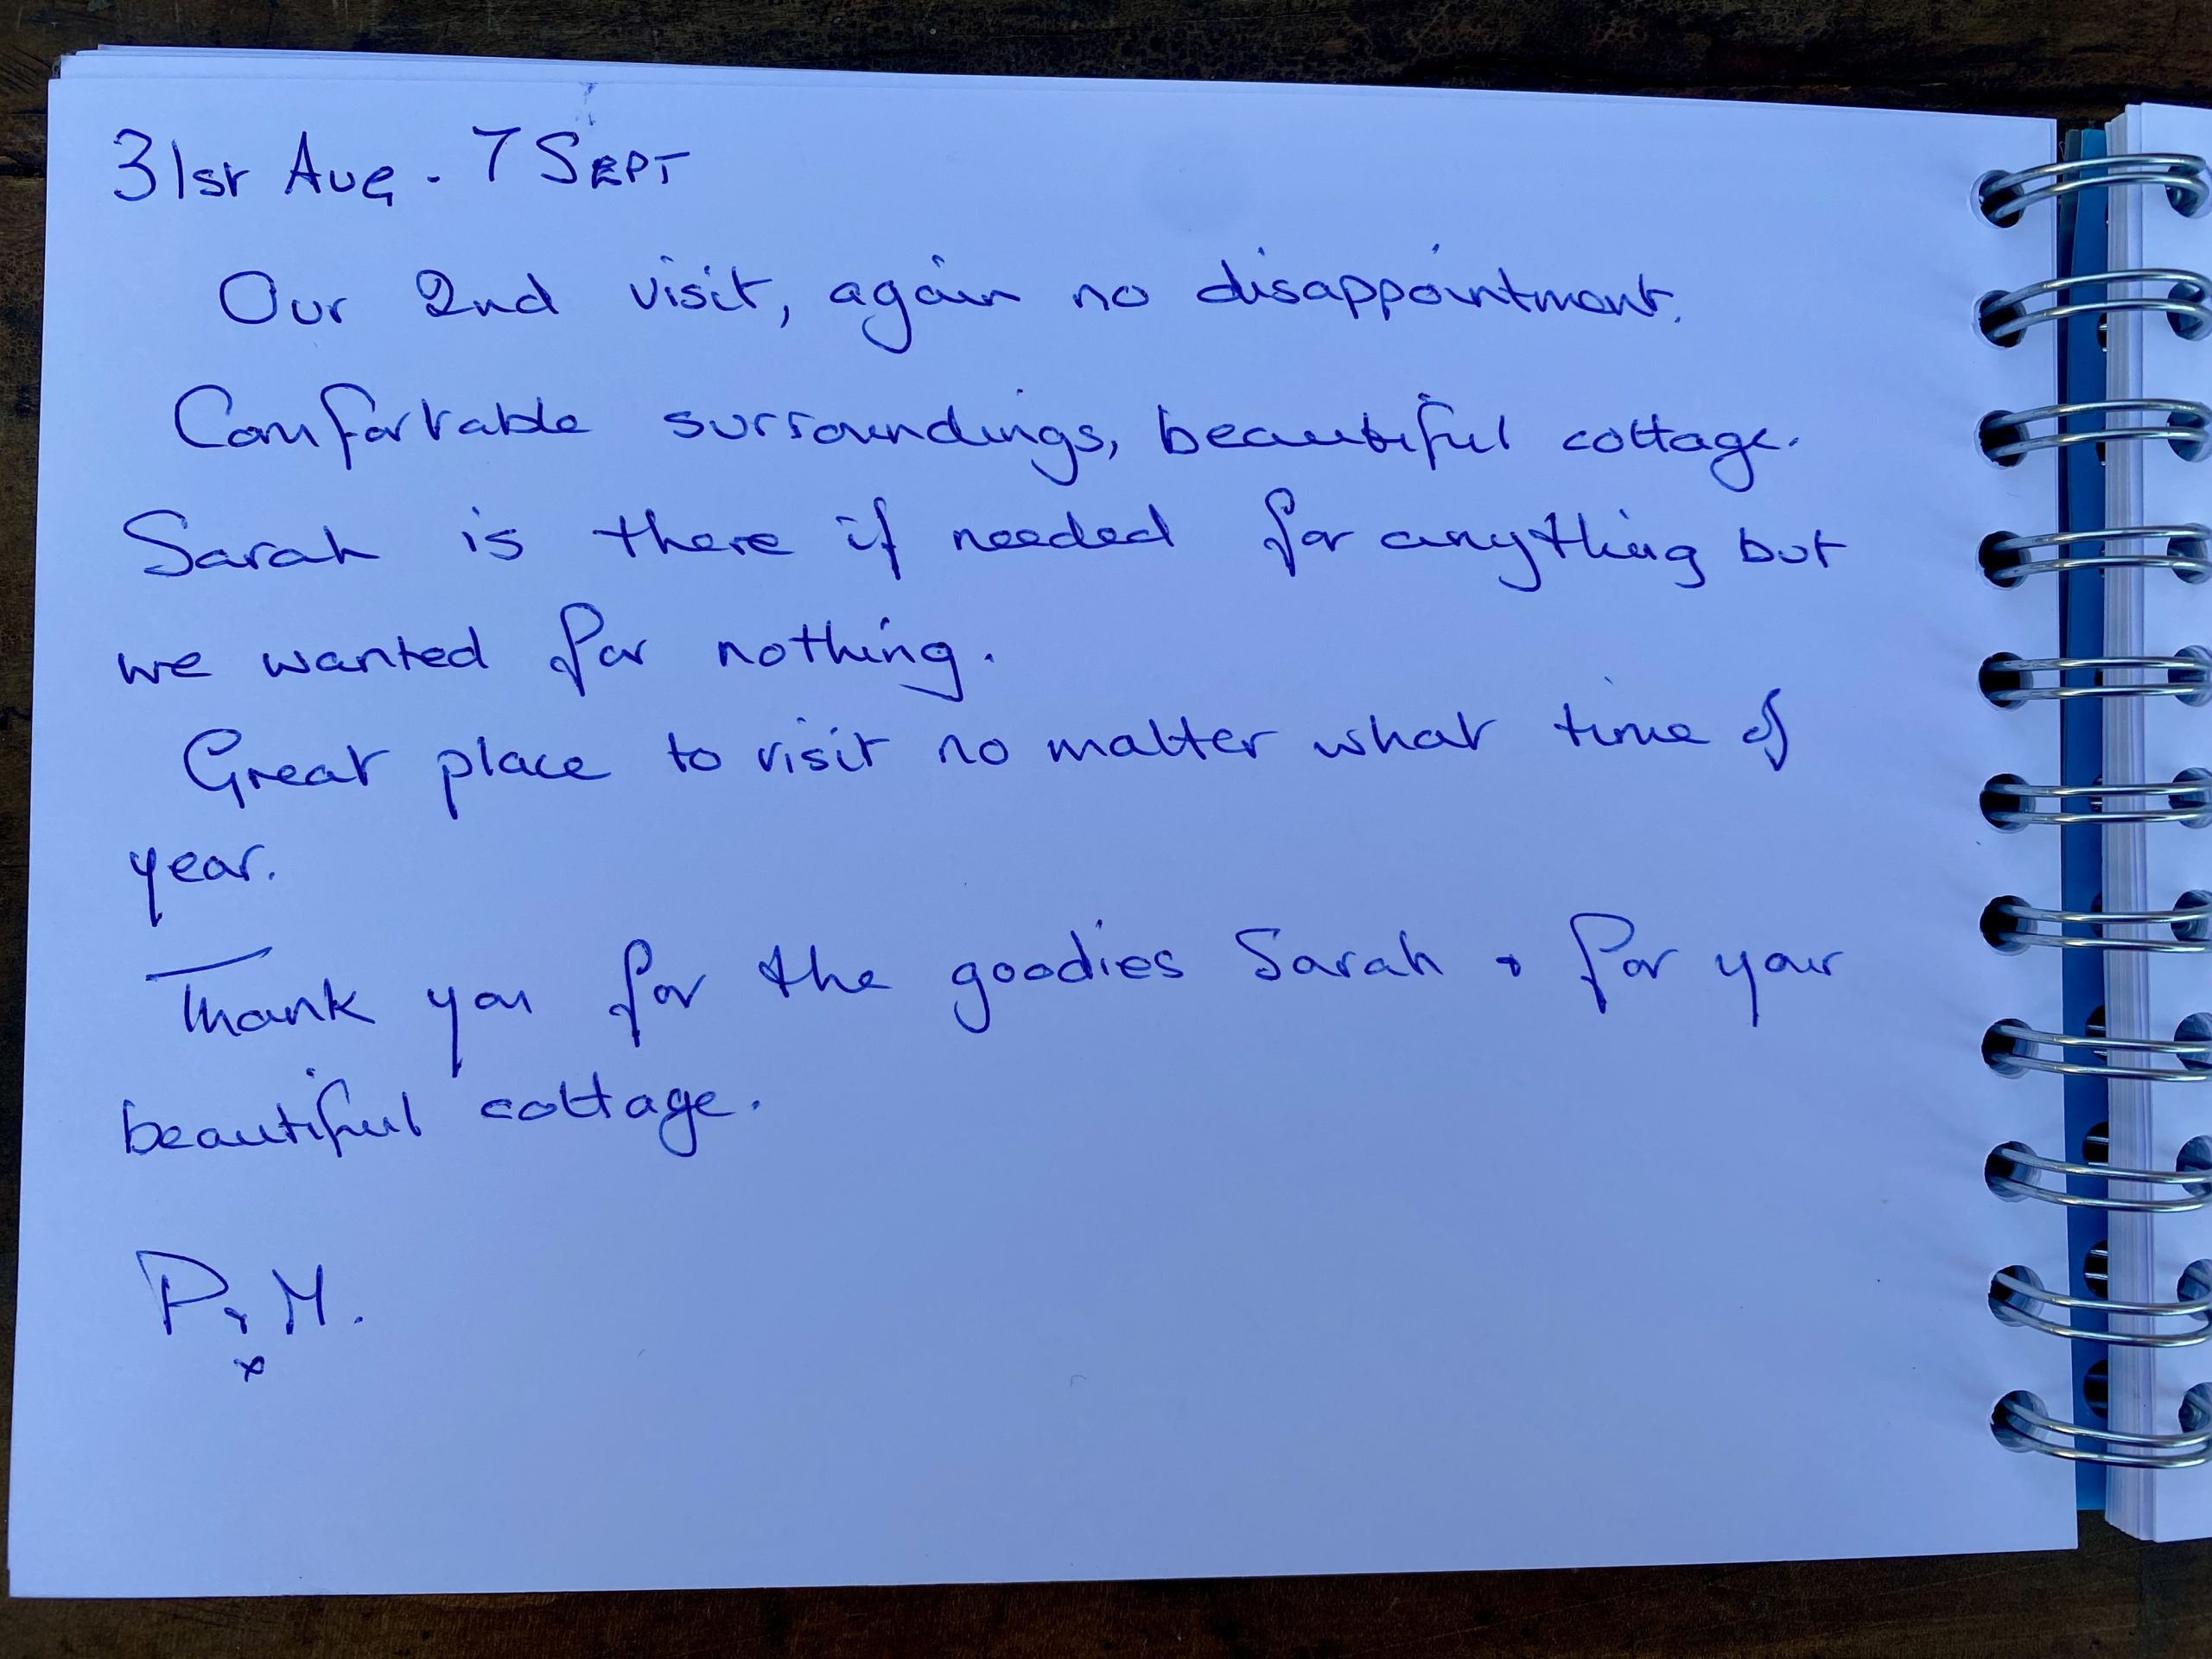 31st Aug. 7 Sept
Our 2nd visit, again no disappointment.
Comfortable surroundings, beautiful cottage.
Sarah is there if needed for anything but
we wanted for nothing.
Great place to visit no matter what time of
year.
Thank you for the goodies Sarah + for your
beautiful cottage.
P + M.
x